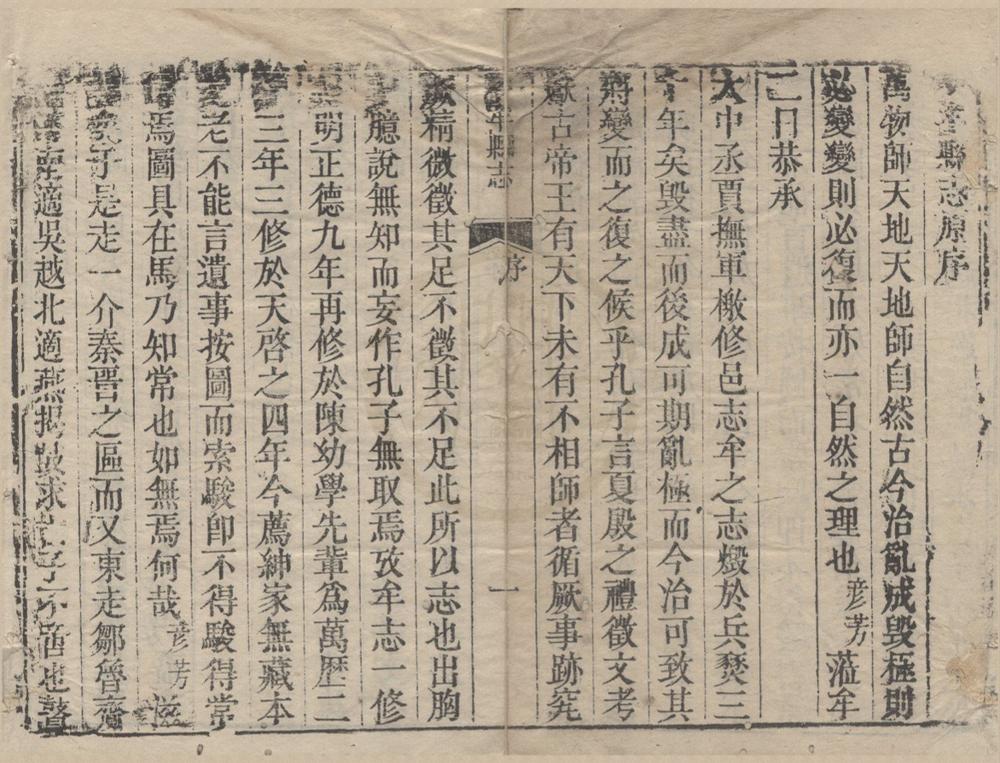 縣志原序
萬物師天地天地師自然古今治亂成毀極則
必變變則必復而亦一自然之理也彥芳蒞牟
二日恭承
大中丞賈撫軍檄修邑志牟之志燬於兵燹三
十年矣毀盡而後成可期亂極而今治可致其
將變而之復之候乎孔子言夏殷之禮徵文考
獻古帝王有天下未有不相師者循厥事跡究
厥精微徵其足不徵其不足此所以志也出胸
臆說無知而妄作孔子無取焉攷牟志一修
明正德九年再修於陳幼學先輩為萬曆二
三年三修於天啓之四年今薦紳家無藏本
老不能言遺事按圖而索駿卽不得駿得常
焉圖具在馬乃知常也如無焉何哉彥芳滋
于是走一介秦晉之區而又東走鄒魯齊
南適吳越北適燕揭鼓求 子不啻也聲
牟縣志
序
一